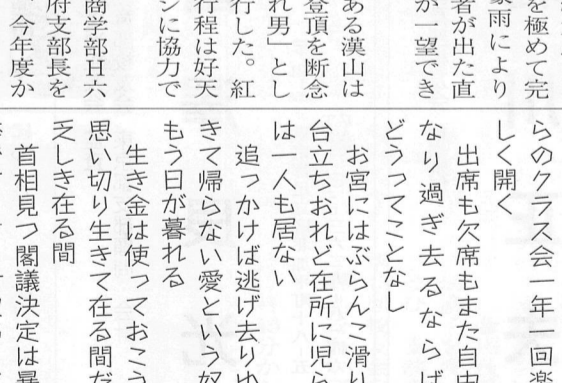 を極めて完
豪雨により
者が出た直
が一望でき
ある漢山は
登頂を断念
れ男」とし
行した。紅
行程は好天
ンに協力で
商学部H六
府支部長を
今年度か
らのクラス会一年一回楽
しく開く
出席も欠席もまた自由
なり過ぎ去るならば
どうってことなし
お宮にはぶらんこ滑り
台立ちおれど在所に児ら
は一人も居ない
追っかけば逃げ去りゆ
きて帰らない愛という奴
もう日が暮れる
生き金は使っておこう
思い切り生きて在る間だ
乏しき在る間
首相見つ閣議決定は暴